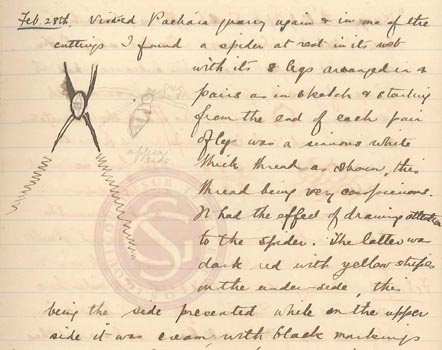 Feb. 28th. Visited Pachais quarry again & in one of the
cuttings I found a spider at rest in its web
with its 8 legs arranged in 4
pairs as in sketch & starting
from the end of each pair
of legs was a sinuous white
thick thread as shown, this
thread being very conspicuous.
It had the effect of drawing attention
to the spider. The latter was
dark red with yellow stripes
on the under-side, this
being the side presented while on the upper
side it was cream with black markings
upper
side